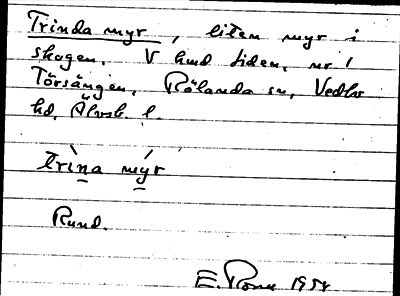 Trinda myr, liten myr i
skogen. V om Liden, nr 1
Törsängen, Rölanda sn, Vedbo
hd, Älvsb. l.
trìna mýr
Rund.
E. 1954